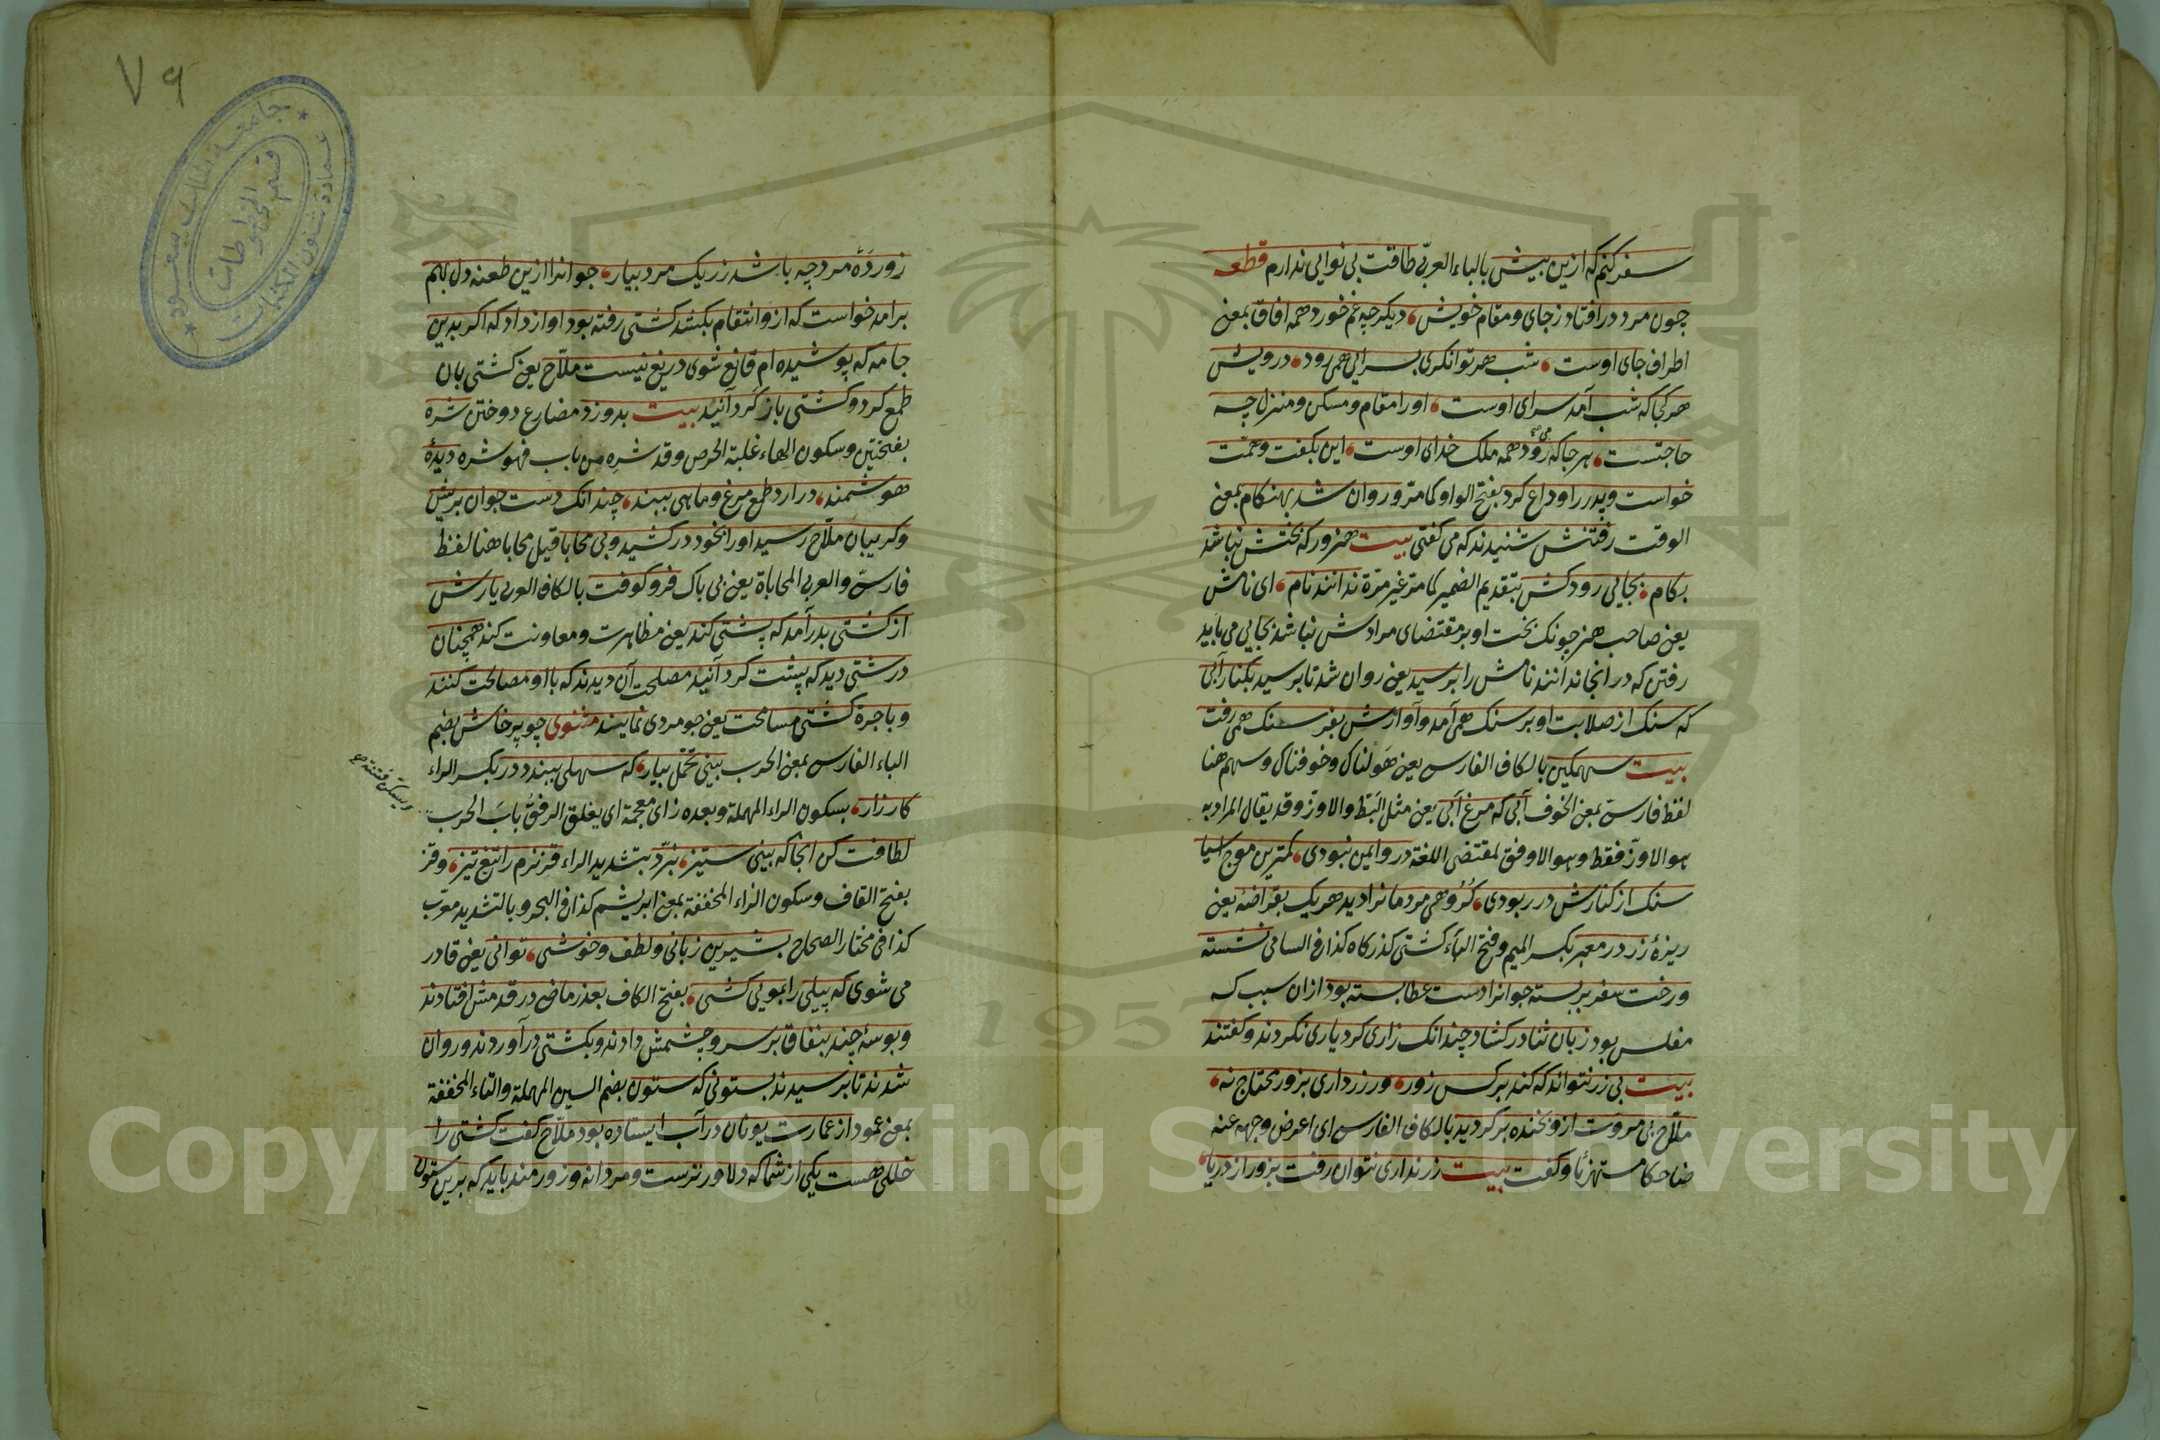 سفر کنم که ازین بیش بالباء العربیّ طاقت بی نوایی ندارم قطعه
چون مرد درافتاد ز جای و مقام خویش، دیگر چه غم خورد همه افاق بمعنی
اطراف جای اوست، شب هر توانکری بسرایی همی رود، درویش
هر کجا که شب آمد سرای اوست، او را مقام و مسکن و منزل چه
حاجتست، هر جا که رود همه ملک خدای اوست، این بکفت و همّت
خواست و پدر را وداع کرد بفتح الواو کما مرّ و روان شد بهنکام بمعنی
الوقت رفتنش شنیدند که می کفتی بیت هنرور که بختش نباشد
بکام، بجایی رود کش بتقدیم الضمیر کما مرّ غیر مرّة ندانند نام، ای نامش
یعنی صاحب هنر چونک بخت او بر مقتضای مرادش نباشد بجایی می باید
رفتن که در انجا ندانند نامش را برسید یعنی روان شد تا برسید بکنار آبی
که سنک از صلابت او بر سنک همی آمد و آوازش بفرسنک همی رفت
بیت سهمکین بالکاف الفارسی یعنی هولناک و خوفناک و سهم هنا
لفظ فارسیّ بمعنی الخوف آبی که مرغ آبی یعنی مثل البَطّ والاوزّ وقد یقال المراد به
هو الاوزّ فقط و هو الاوفق لمقتضی اللغة درو ایمن نبودی، کمترین موج اسیا
سنک از کنارش در ربودی، کروهی مردمانرا دید هر یک بقراضهٔ یعنی
ریزهٔ زر در معبر بکسر المیم و فتح الباء کشتی کذرکاه کذا فی السامی نشسته
و رخت سفر بر بسته جوانرا دست عطا بسته بود ازان سبب که
مفلس بود زبان ثنا در کشاد چندانک زاری کرد یاری نکردند و کفتند
بیت بی زر نتواند که کند بر کس زور، ور زر داری بزور محتاج نه،
ملّاح بی مروّت ازو بخنده بر کردید بالکاف الفارسی ای اعرض وجهه عنه
ضاحکا مستهزئا و کفت بیت زر نداری نتوان رفت بزور از دریا،
زور دَه مرد چه باشد زر یک مرد بیار، جوانرا ازین طعنه دل بهم
برامد خواست که ازو انتقام بکشد کشتی رفته بود اواز داد که اکر بدین
جامه که پوشیده ام قانع شوی دریغ نیست ملّاح یعنی کشتی بان
طمع کرد و کشتی باز کردانید بیت بدوزد مضارع دوختن شره
بفتحتین و سکون الهاء غلبة الحرص وقد شره من باب فهو شره دیدهٔ
هوشمند، درارد طمع مرغ و ماهی ببند، چندانک دست جوان بریش
و کریبان ملّاح رسید او را بخود در کشید و بی محابا قیل محابا هنا لفظ
فارسیّ والعربی المحاباة یعنی بی باک فرو کوفت بالکاف العربی یارش
از کشتی بدر آمد که پشتی کند یعنی مظاهرت و معاونت کند همچنان
درشتی دید که پشت کردانید مصلحت آن دیدند که با او مصالحت کنند
و باجرة کشتی مسامحت یعنی جومردی نمایند مثنوی چو پرخاش بضم
الباء الفارسی بمعنی الحرب بینی تحمّل بیار، که سهلی ببندد در بکسر الراء
کارزار، بسکون الراء المهملة و بعده زای معجمة ای یغلق الرفق بابَ الحرب
لطافت کن انجا که بینی ستیز، نبرّد بتشدید الراء قز نرم را تیغ تیز، و قز
بفتح القاف و سکون الزاء المخففة بمعنی ابریشم کذا فی البحر و بالتشدید معرّب
کذا فی مختار الصحاح بشیرین زبانی و لطف و خوشی، توانی یعنی قادر
می شوی که پیلی را بمویی کشی، بفتح الکاف بعذر ماضی در قدمش افتادند
و بوسهٔ چند بنفاق بر سر و چشمش دادند و بکشتی در آوردند و روان
شدند تا برسیدند بستونی که ستون بضم السین المهملة والتاء المخففة
بمعنی عمود از عمارت یونان در آب ایستاده بود ملّاح کفت کشتی را
خللی هست یکی از شما که دلاورترست و مردانه و زورمند باید که برین ستون
٧٩
جامعة الملك سعود
عمادة شئون المكتبات
قسم المخطوطات
1957
Copyright © King Saud University